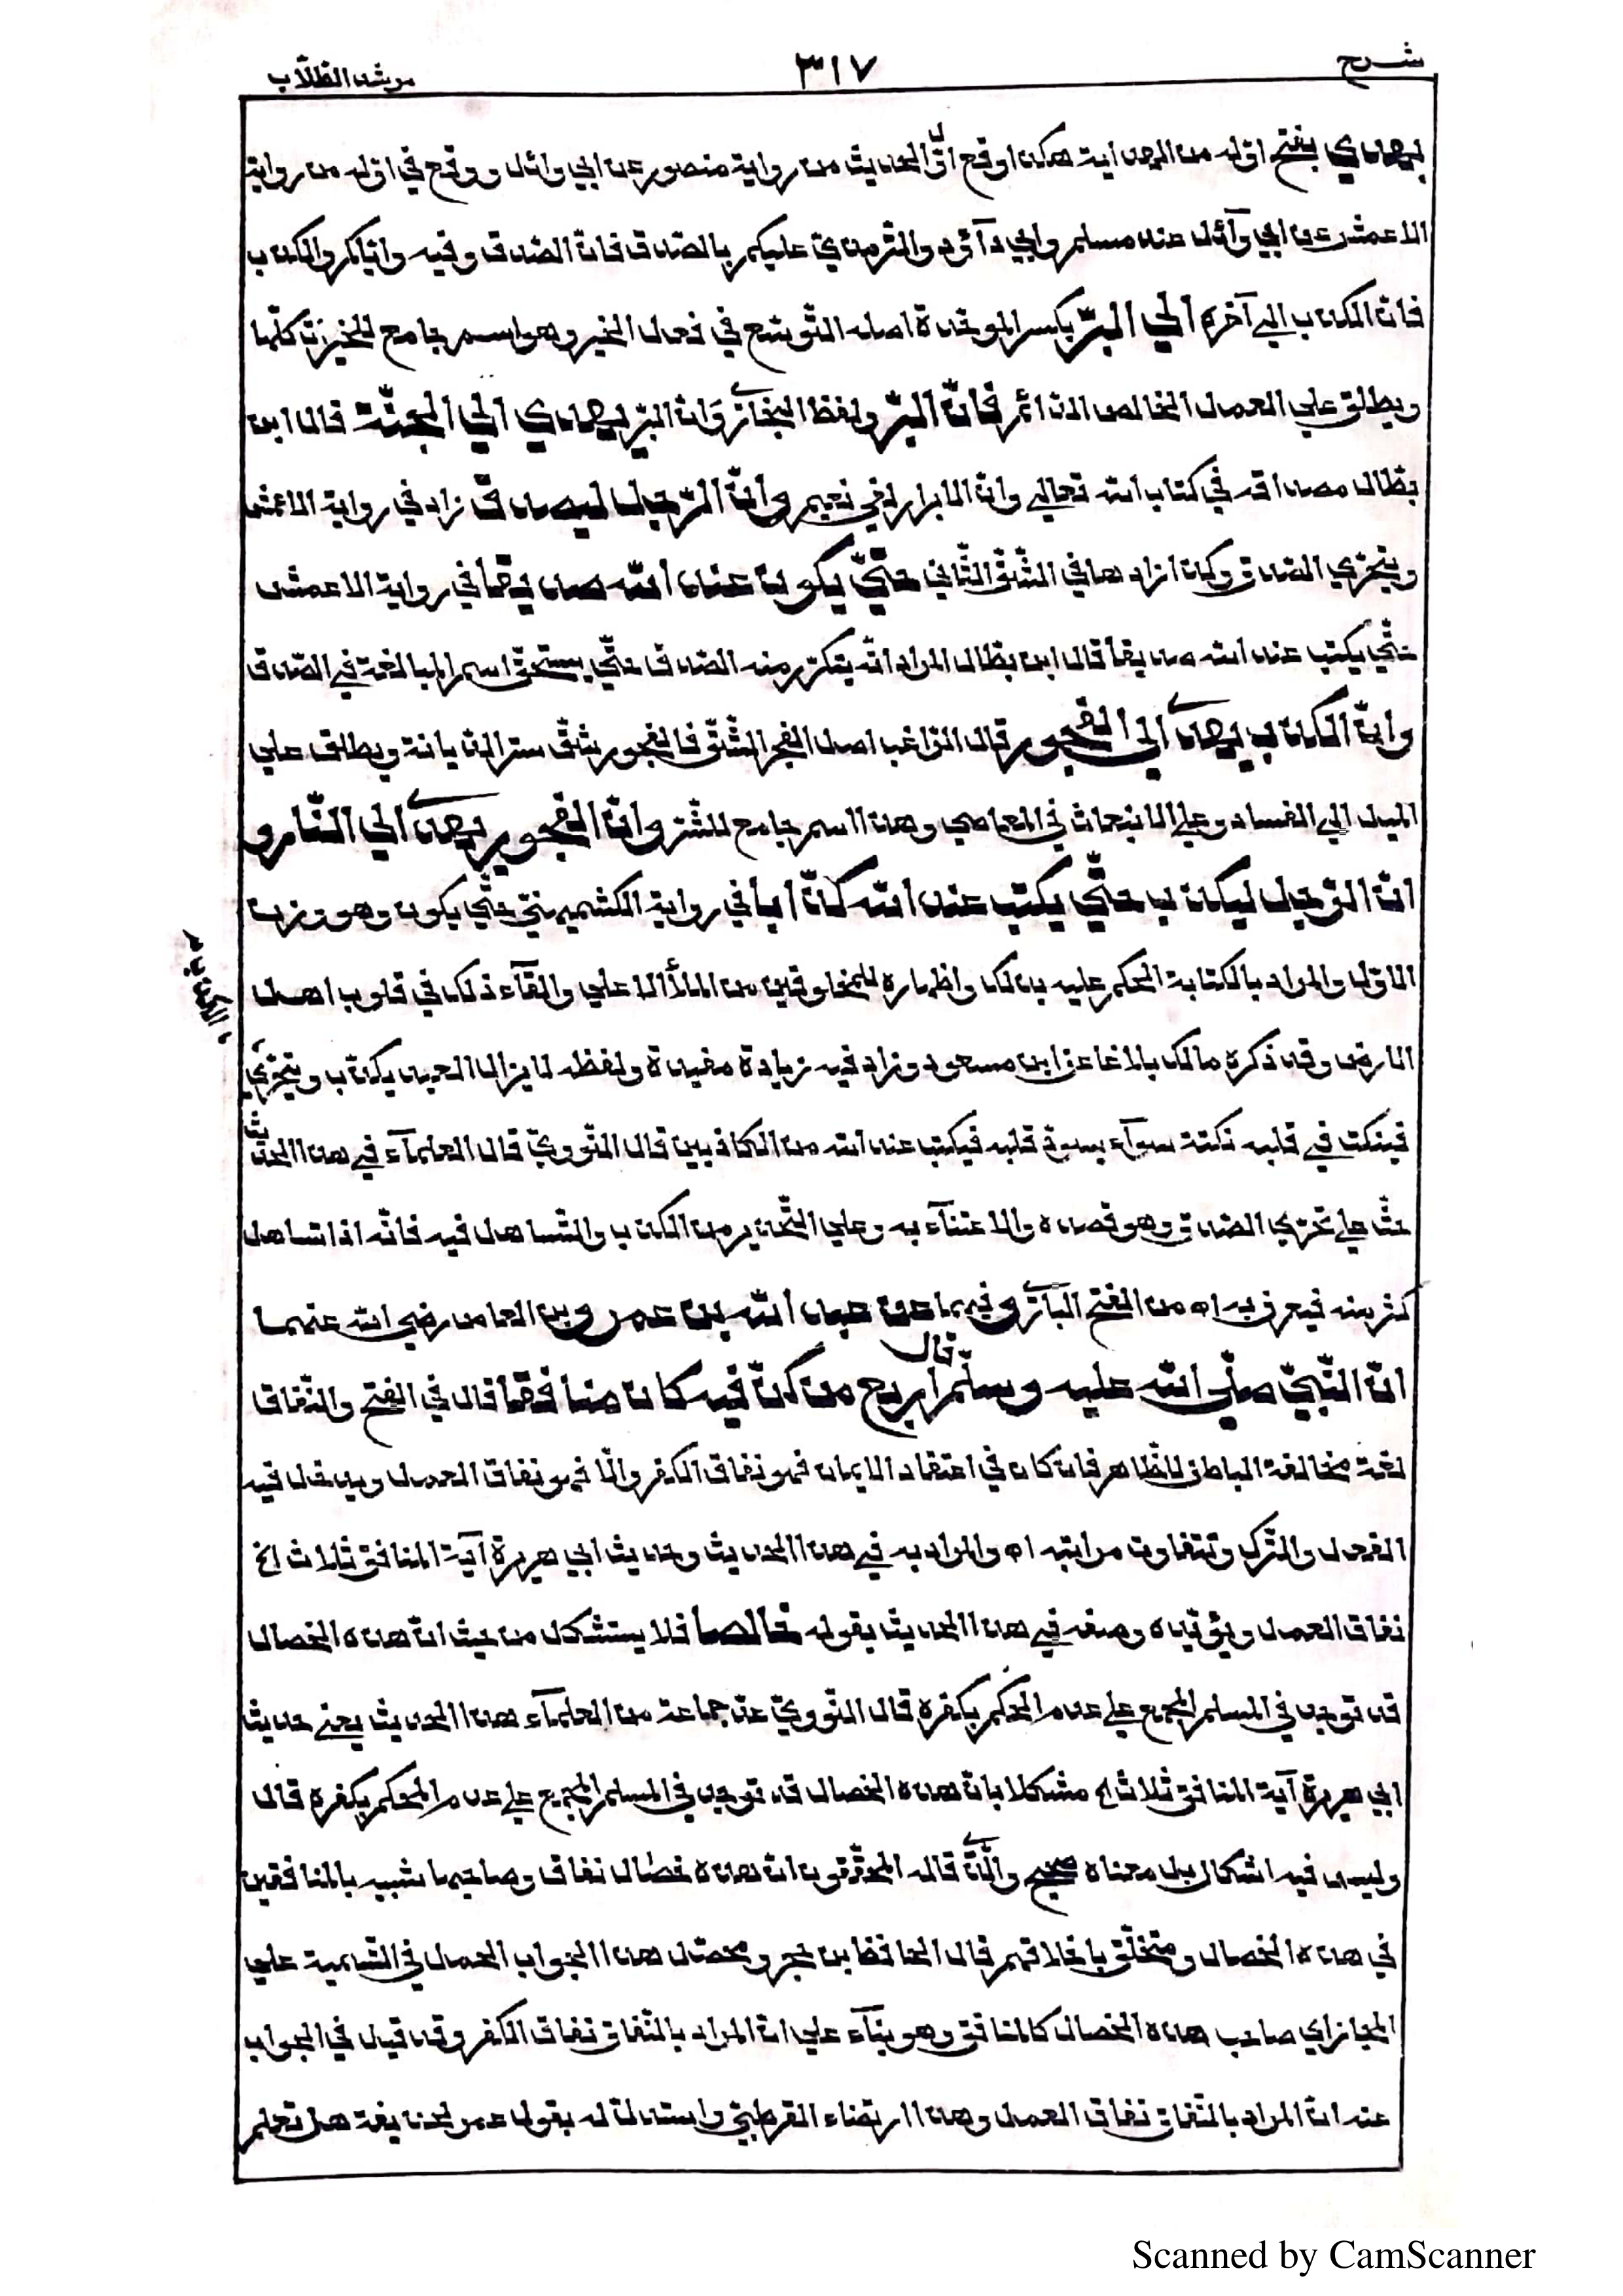 شرح
٣١٧
مرشد الطلّاب
يهدي بفتح اوّله من الهداية هكذا وقع اوّل الحديث من رواية منصور عن ابي وائل ووقع في اوّله من رواية
الاعمش عن ابي وآئل عند مسلم وابي دآؤد والترمذيّ عليكم بالصّدق فانّ الصّدق وفيه وايّاكم والكذب
فانّ الكذب الي آخره الي البرّ بكسر الموحّدة اصله التّوسّع في فعل الخير وهو اسم جامع للخيرات كلّها
ويطلق علي العمل الخالص الدّائم فانّ البرّ ولفظ البخاريّ وانّ البرّ يهدي الي الجنّة قال ابن
بطّال مصداقه في كتاب الله تعالي وانّ الابرار لفي نعيم وانّ الرّجل ليصدق زاد في رواية الاعمش
ويتحرّي الصّدق وكذا زادها في الشّقّ الثّاني حتّي يكون عند الله صدّيقا في رواية الاعمش
حتّي يكتب عند الله صدّيقا قال ابن بطّال المراد انّه يتكرّر منه الصّدق حتّي يستحقّ اسم المبالغة في الصّدق
وانّ الكذب يهدي الي الفجور قال الرّاغب اصل الفجر الشّقّ فالفجور شقّ ستر الدّيانة ويطلق علي
الميل الي الفساد وعلي الانبعاث في المعاصي وهذا اسم جامع للشّرّ وانّ الفجور يهدي الي النّار و
انّ الرّجل ليكذب حتّي يكتب عند الله كذّابا في رواية الكشميهنيّ حتّي يكون وهو وزن
الاوّل والمراد بالكتابة الحكم عليه بذلك واظهاره للمخلوقين من الملأ الاعلي والقآء ذلك في قلوب اهل
الارض وقد ذكره مالك بلاغا عن ابن مسعود وزاد فيه زيادة مفيدة ولفظه لا يزال العبد يكذب ويتحرّي
الكذب
فينكت في قلبه نكتة سوآء يسودّ قلبه فيكتب عند الله من الكاذبين قال النّوويّ قال العلمآء في هذا الحديث
حثّ علي تحرّي الصّدق وهو قصده والاعتنآء به وعلي التّحذير من الكذب والتّساهل فيه فانّه اذا تساهل
كثر منه فيعرف به اه من الفتح الباريّ وفيهما عن عبد الله بن عمرو بن العاص رضي الله عنهما
انّ النّبيّ صلّي الله عليه وسلّم قال اربع من كنّ فيه كان منافقا قال في الفتح والنّفاق
لغة مخالفة الباطن للظّاهر فان كان في اعتقاد الايمان فهو نفاق الكفر والّا فهو نفاق العمل ويدخل فيه
الفعل والتّرك وتتفاوت مراتبه اه والمراد به في هذا الحديث وحديث ابي هريرة آية المنافق ثلاث الخ
نفاق العمل ويؤيّده وصفه في هذا الحديث بقوله خالصا فلا يستشكل من حيث انّ هذه الخصال
قد توجد في المسلم المجمع علي عدم الحكم بكفره قال النّوويّ عدّ جماعة من العلمآء هذا الحديث يعني حديث
ابي هريرة آية المنافق ثلاث الخ مشكلا بانّ هذه الخصال قد توجد في المسلم المجمع علي عدم الحكم بكفره قال
وليس فيه اشكال بل معناه صحيح والّذي قاله المحقّقون انّ هذه خصال نفاق وصاحبها شبيه بالمنافقين
في هذه الخصال ومتخلّق باخلاقهم قال الحافظ ابن حجر ومحصّل هذا الجواب الحمل في التّسمية علي
المجاز اي صاحب هذه الخصال كالمنافق وهو بنآء علي انّ المراد بالنّفاق نفاق الكفر وقد قيل في الجواب
عنه انّ المراد بالنّفاق نفاق العمل وهذا ارتضاء القرطبيّ واستدلّ له بقول عمر لحذيفة هل تعلم
Scanned by CamScanner